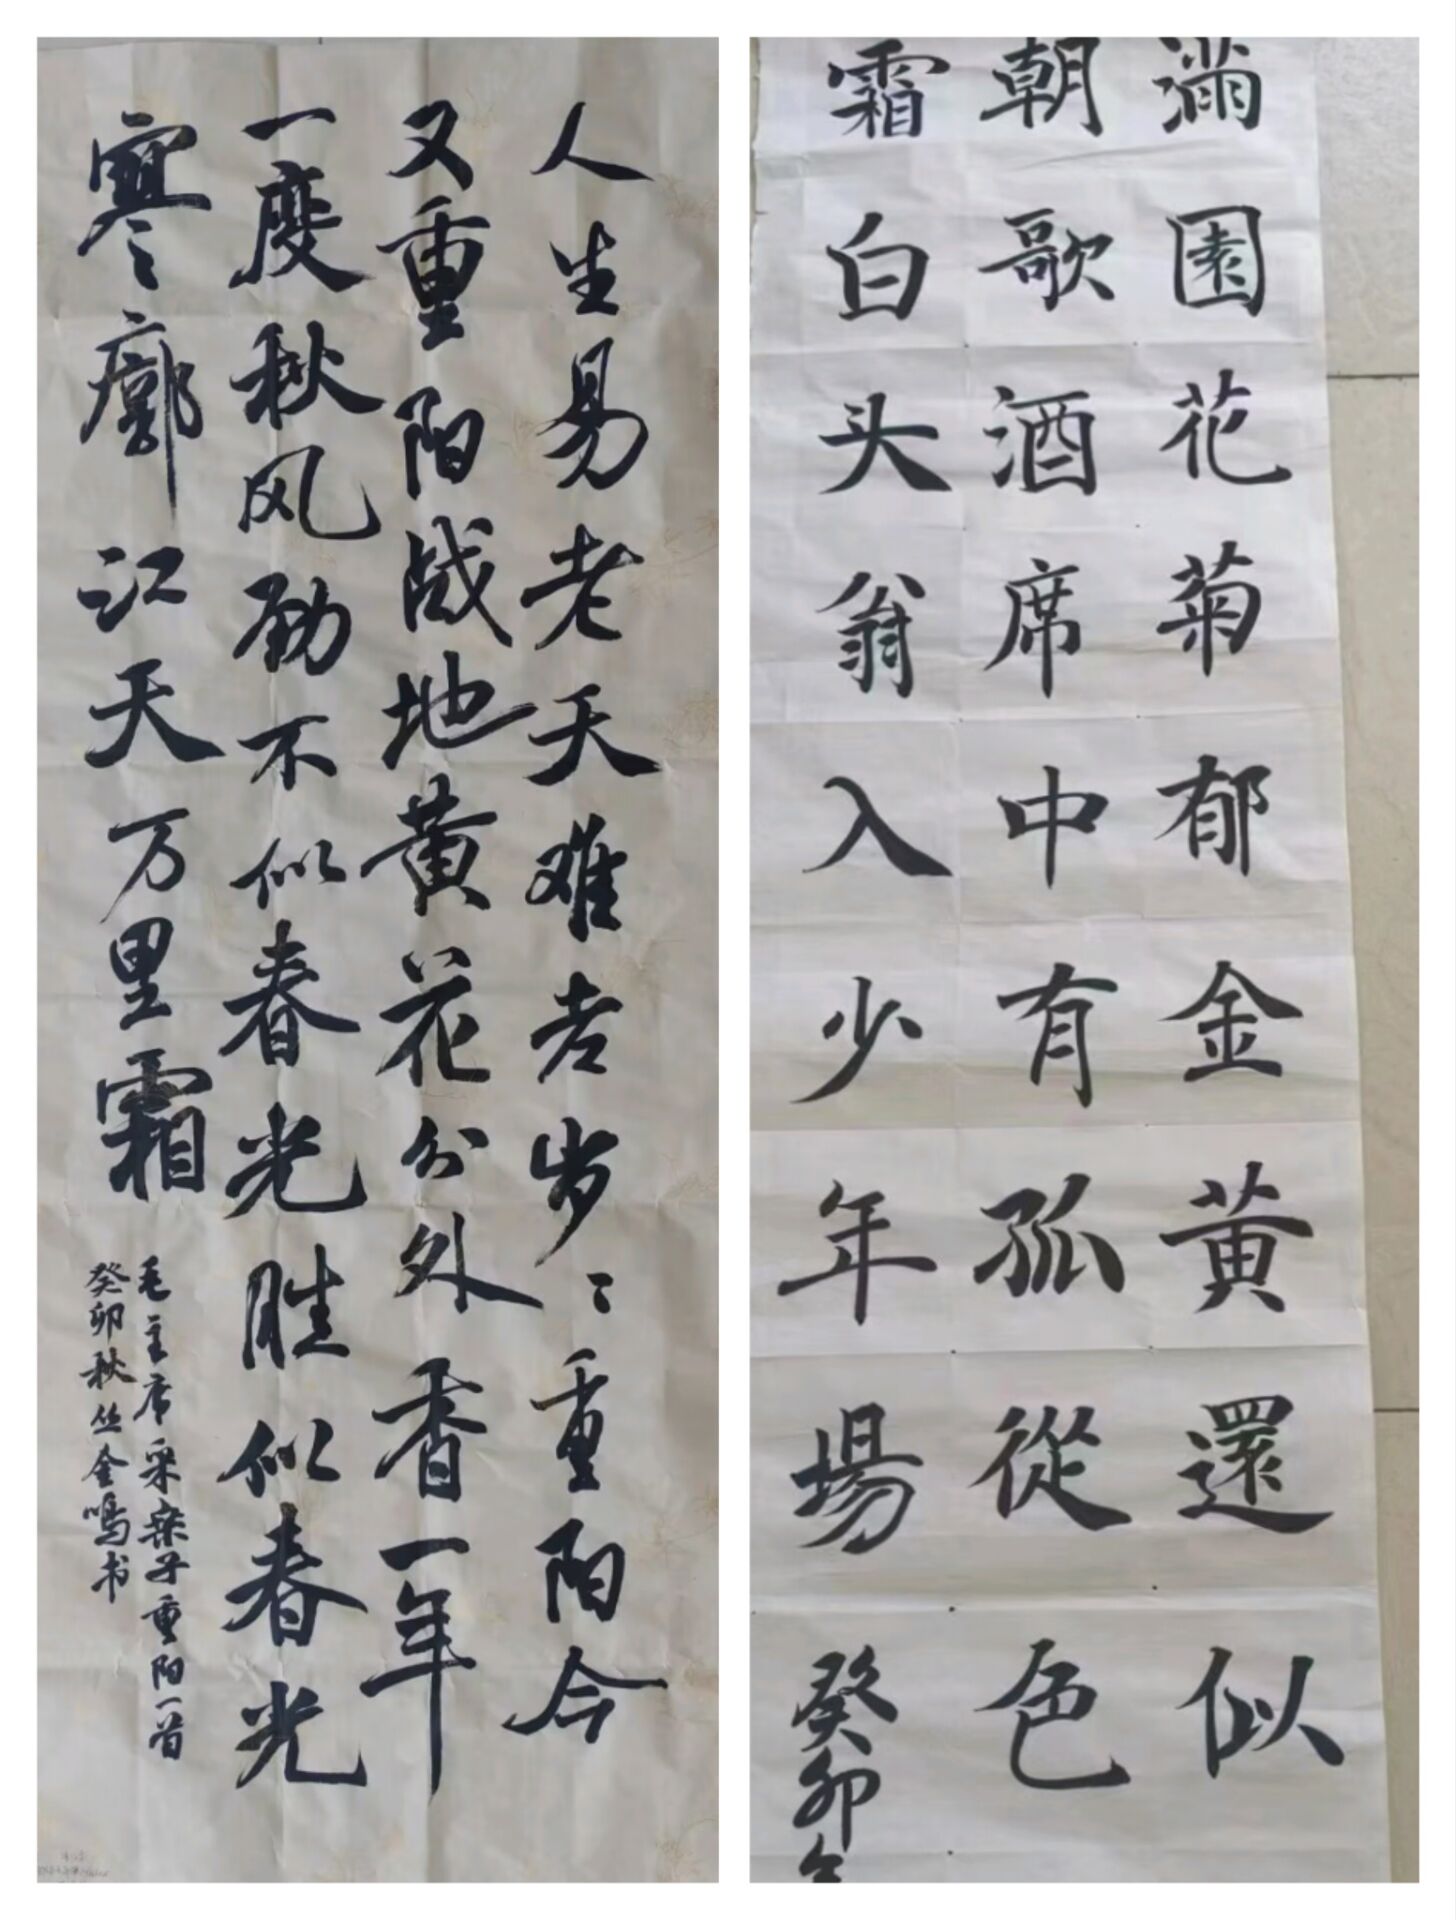 人生易老天难老岁〻重阳今
又重阳战地黄花分外香一年
一度秋风劲不似春光胜似春光
寥廓江天万里霜
毛主席采桑子重阳一首
癸卯秋丛金鸣书
滿園花菊郁金黄還似
朝歌酒席中有孤從色
霜白头翁入少年場
癸卯